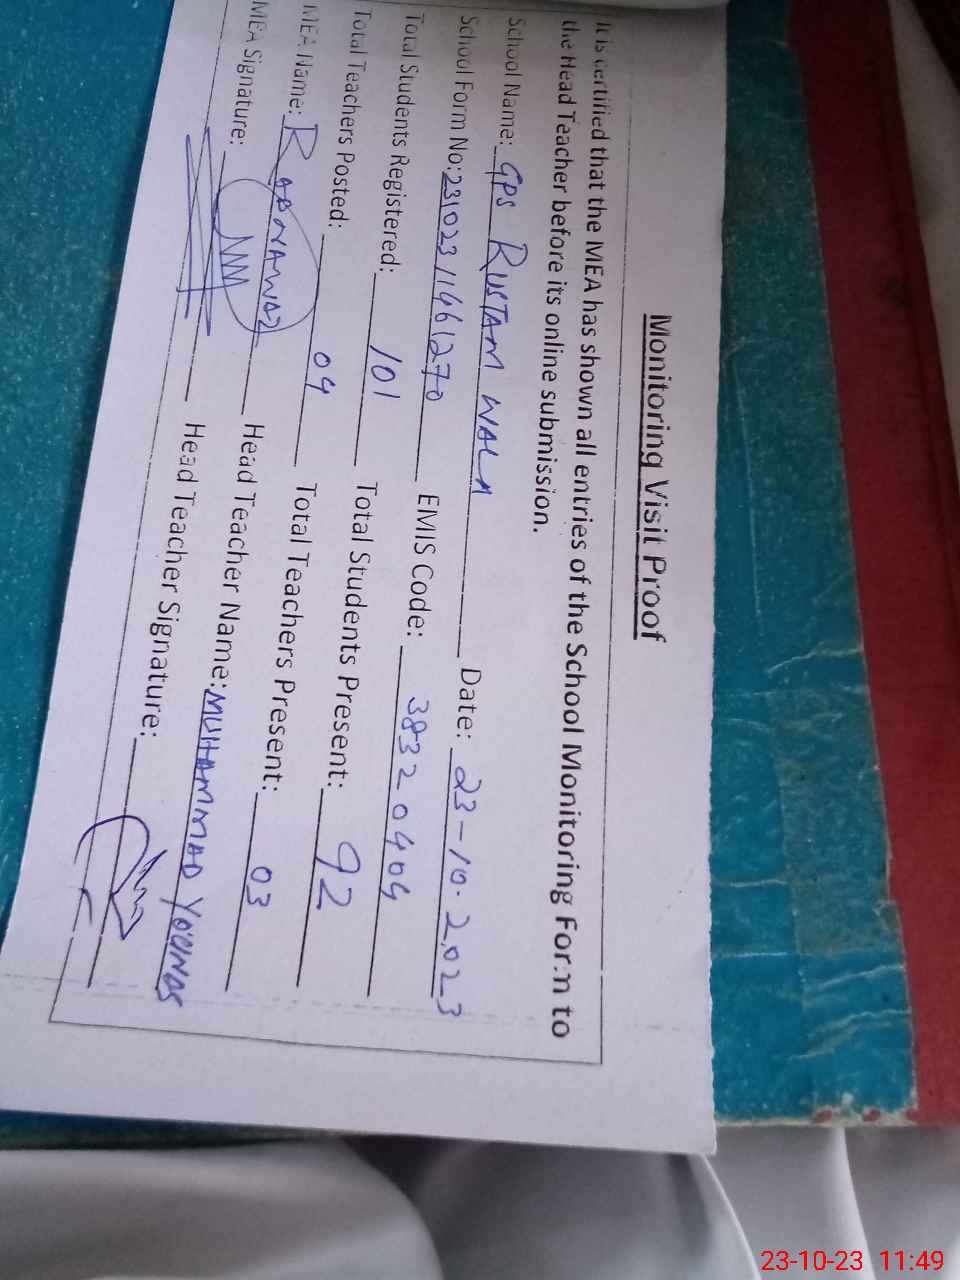 Monitoring Visit Proof
It is certified that the MEA has shown all entries of the School Monitoring Form to
the Head Teacher before its online submission.
School Name: GPS RUSTAM WALA Date: 23-10-2023
School Form No: 231023/1661270 EMIS Code: 38320404
Total Students Registered: 101 Total Students Present: 92
Total Teachers Posted: 04 Total Teachers Present: 03
MEA Name: RABNAWAZ Head Teacher Name: MUHAMMAD YOUNAS
MEA Signature: Head Teacher Signature:
23-10-23 11:49